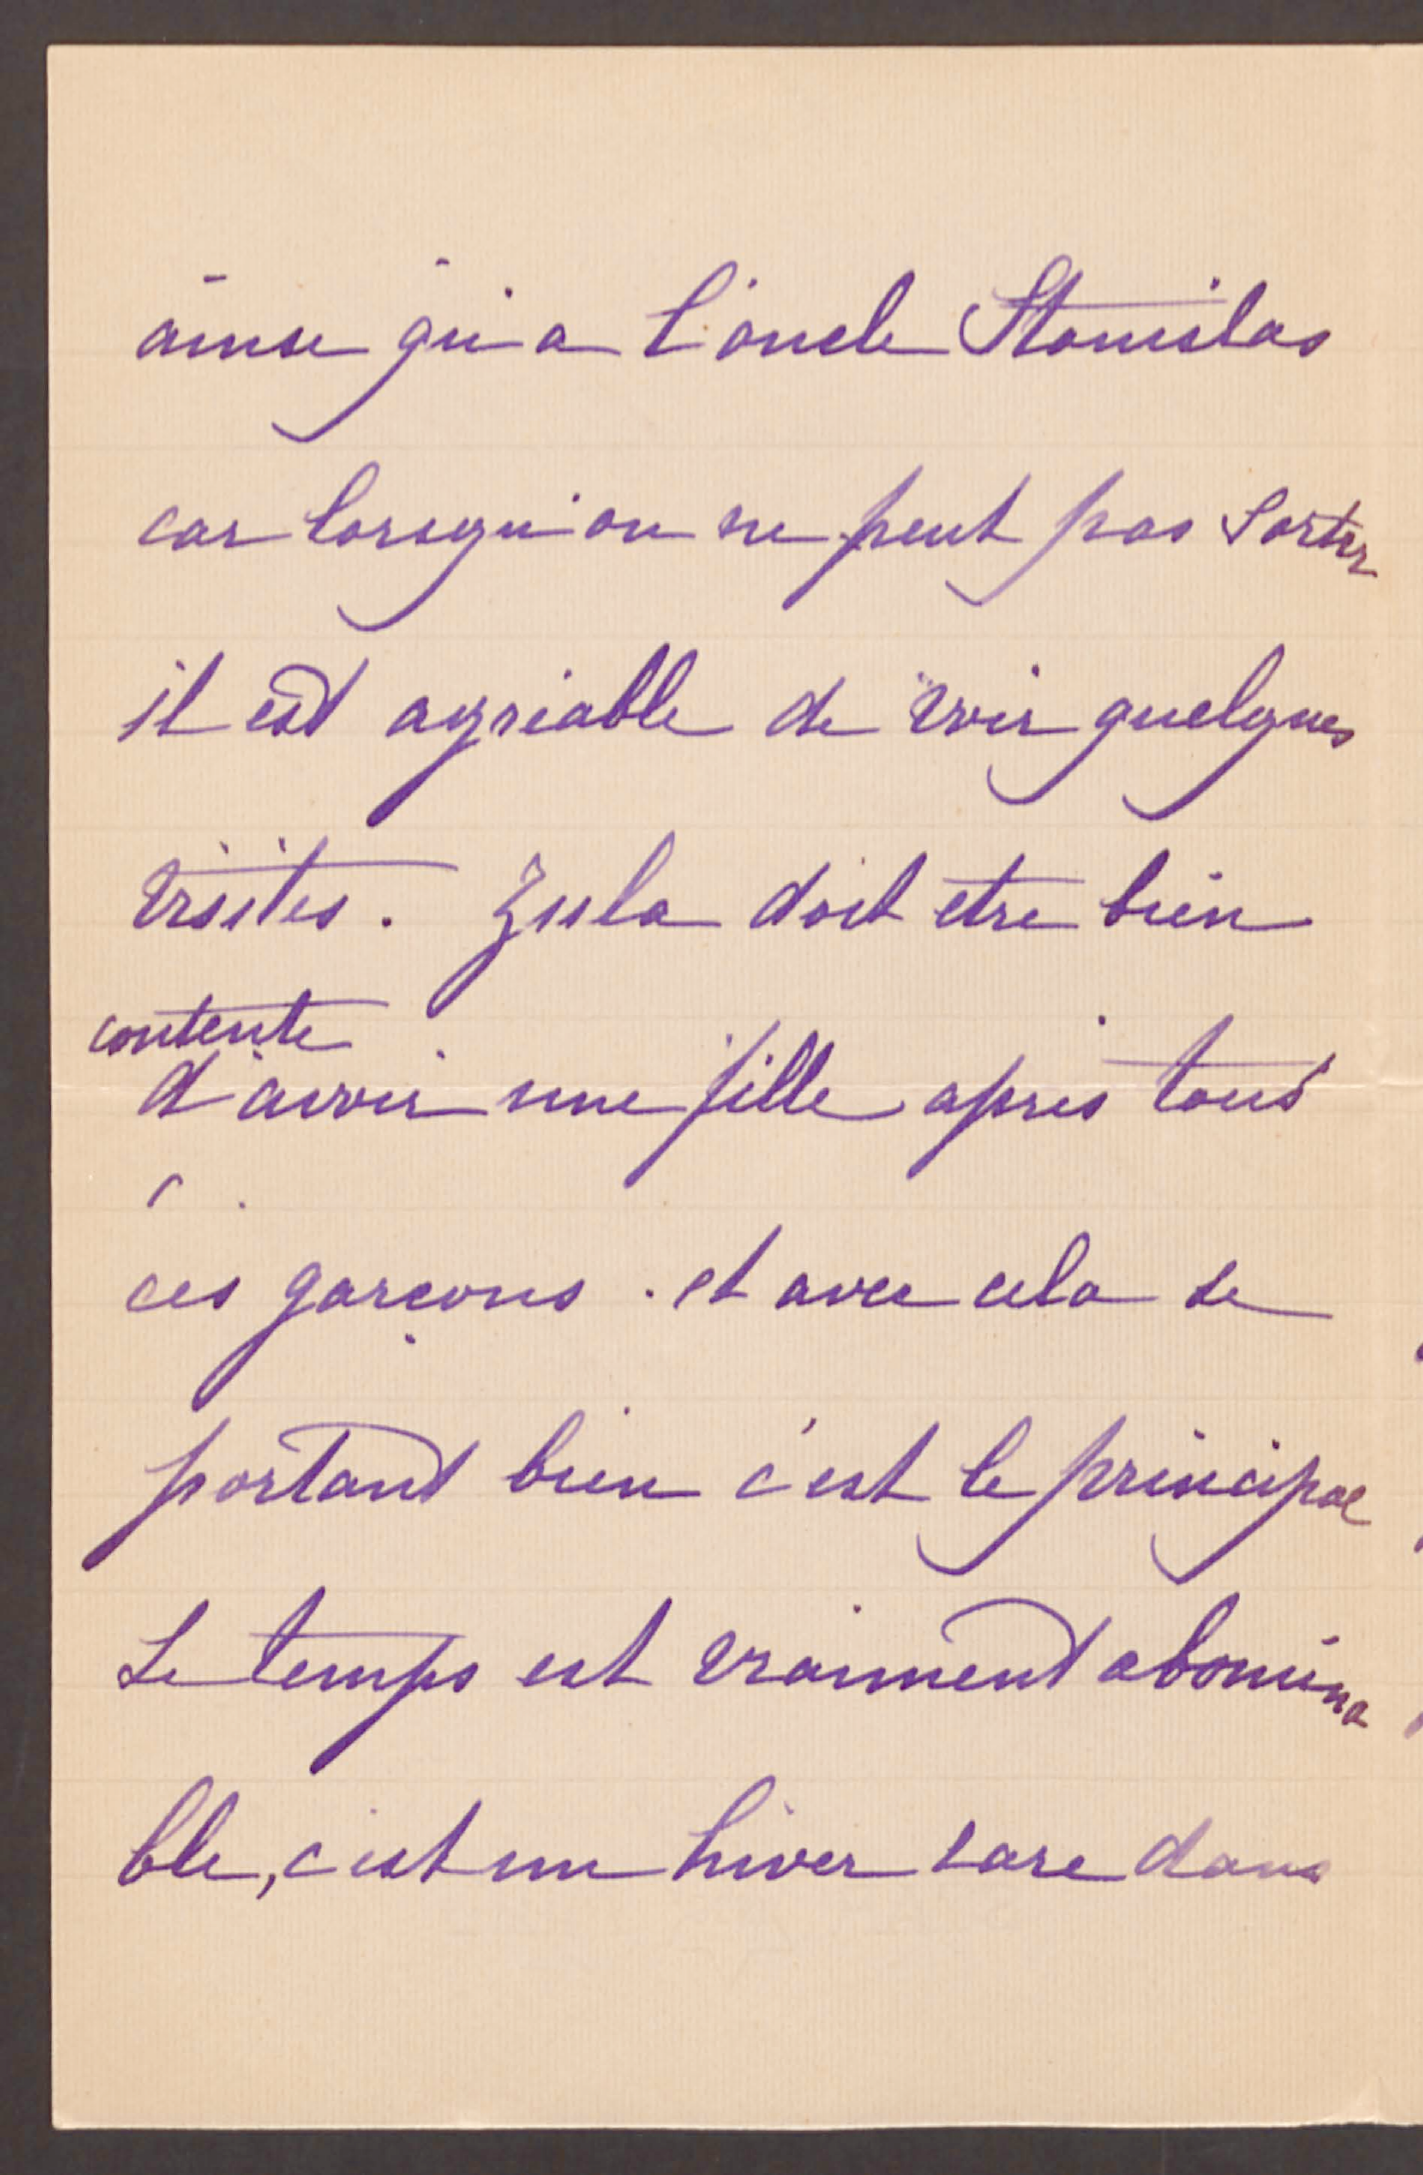 ainsi qu'a l'oncle Stanislas
car lorsqu'on ne peut pas sortir
il est agréable de voir quelques
visites. Zula doit etre bien
contente
d'avoir une fille après tous
ces garçons. et avec cela se
portant bien c'est le principal
Le temps est vraiment abomina
ble, c'est un hiver rare dans